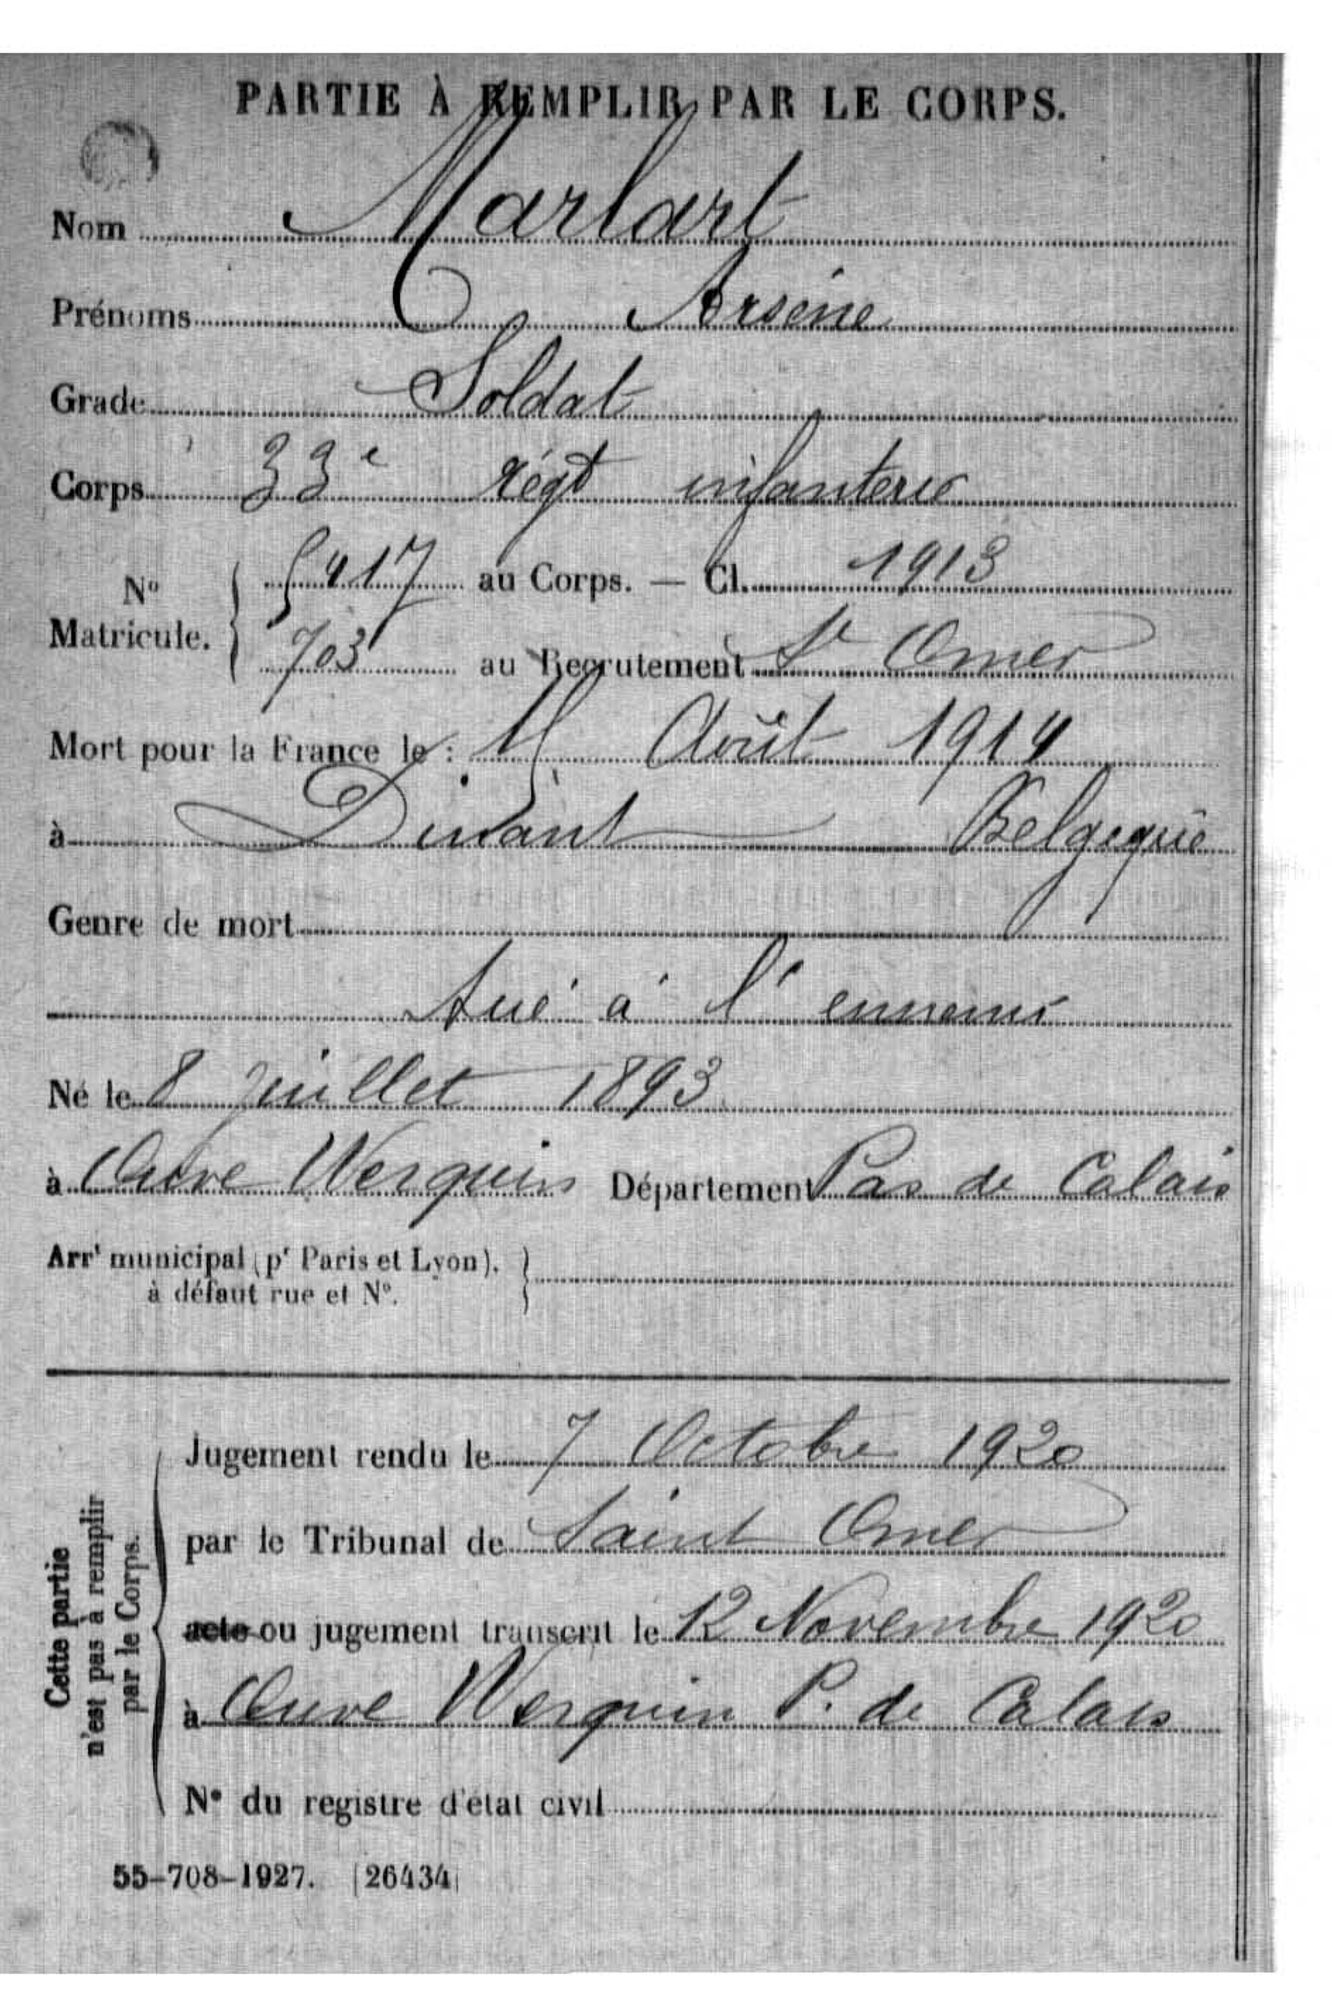 PARTIE À REMPLIR PAR LE CORPS.
Nom Marlart
Prénoms Arsène
Grade Soldat
Corps 33e régt infanterie
No Matricule. { 5417 au Corps. — Cl. 1913
703 au Recrutement St Omer
Mort pour la France le : 15 Août 1914
à Dinant Belgique
Genre de mort
tué à l'ennemi
Né le 8 juillet 1893
à Ouve Werquin Département Pas de Calais
Arrt municipal (pr Paris et Lyon), }
à défaut rue et No.
Cette partie
n'est pas à remplir
par le Corps.
Jugement rendu le 7 Octobre 1920
par le Tribunal de Saint Omer
acte ou jugement transcrit le 12 Novembre 1920
à Ouve Werquin P. de Calais
No du registre d'état civil
55-708-1927. [26434]